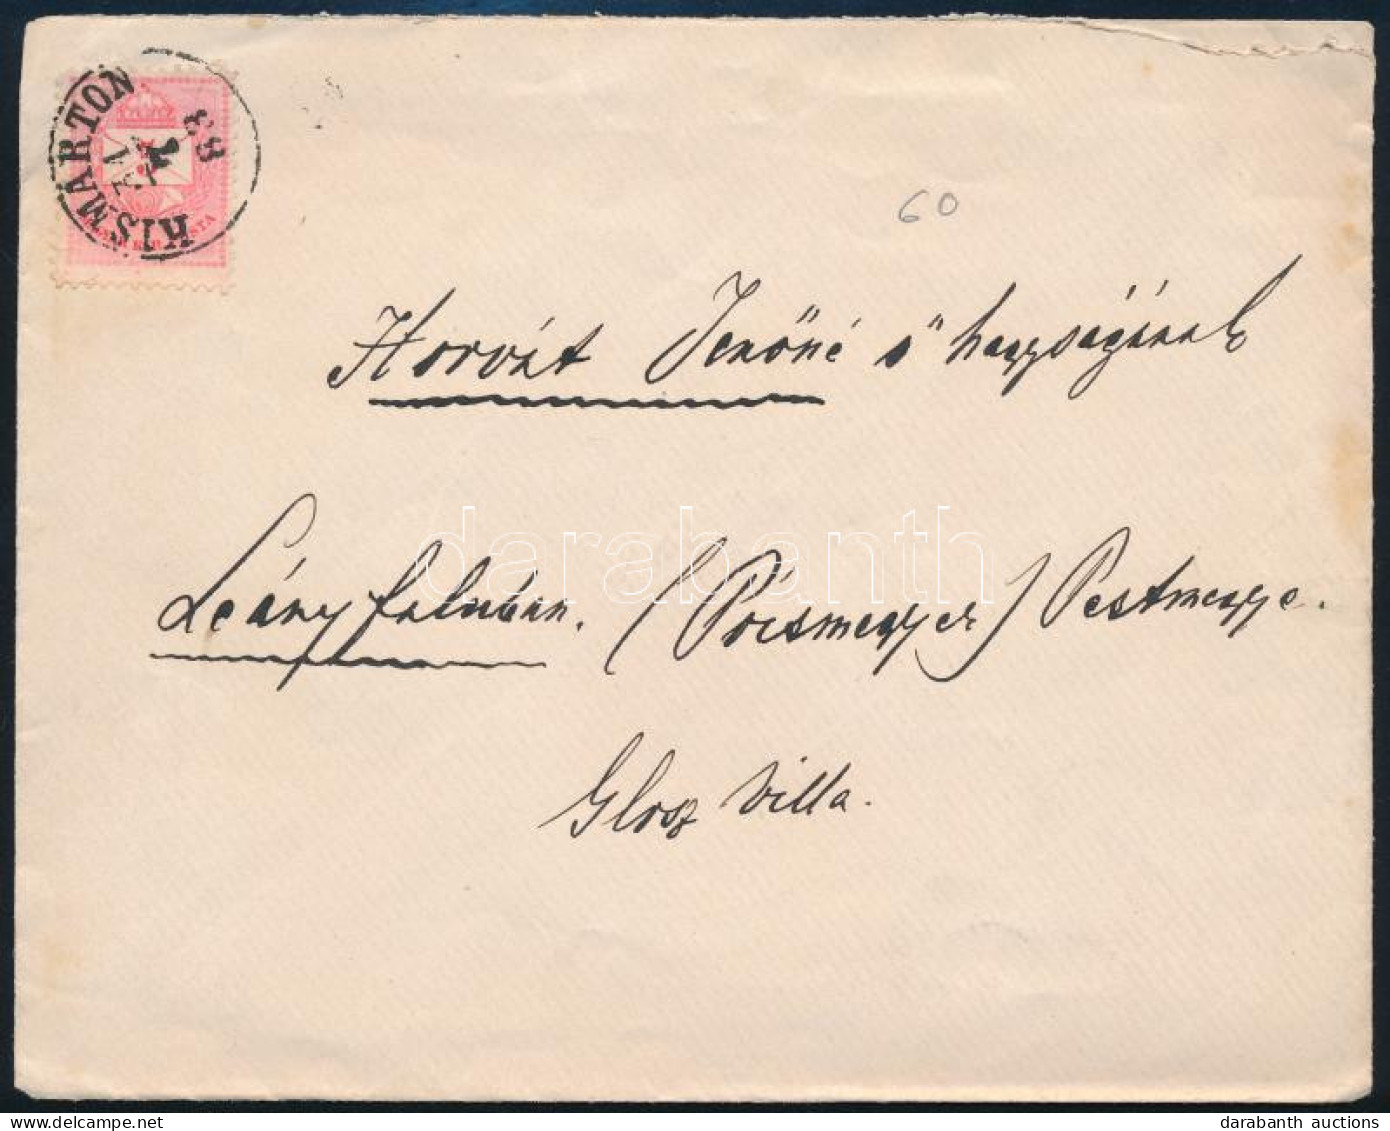 KISMARTON
83
60
Horvát Jenőné ő nagyságának
Leányfaluban. (Pócsmegyer) Pestmegye.
Glosz Villa.
darabanth
darabanth auctions